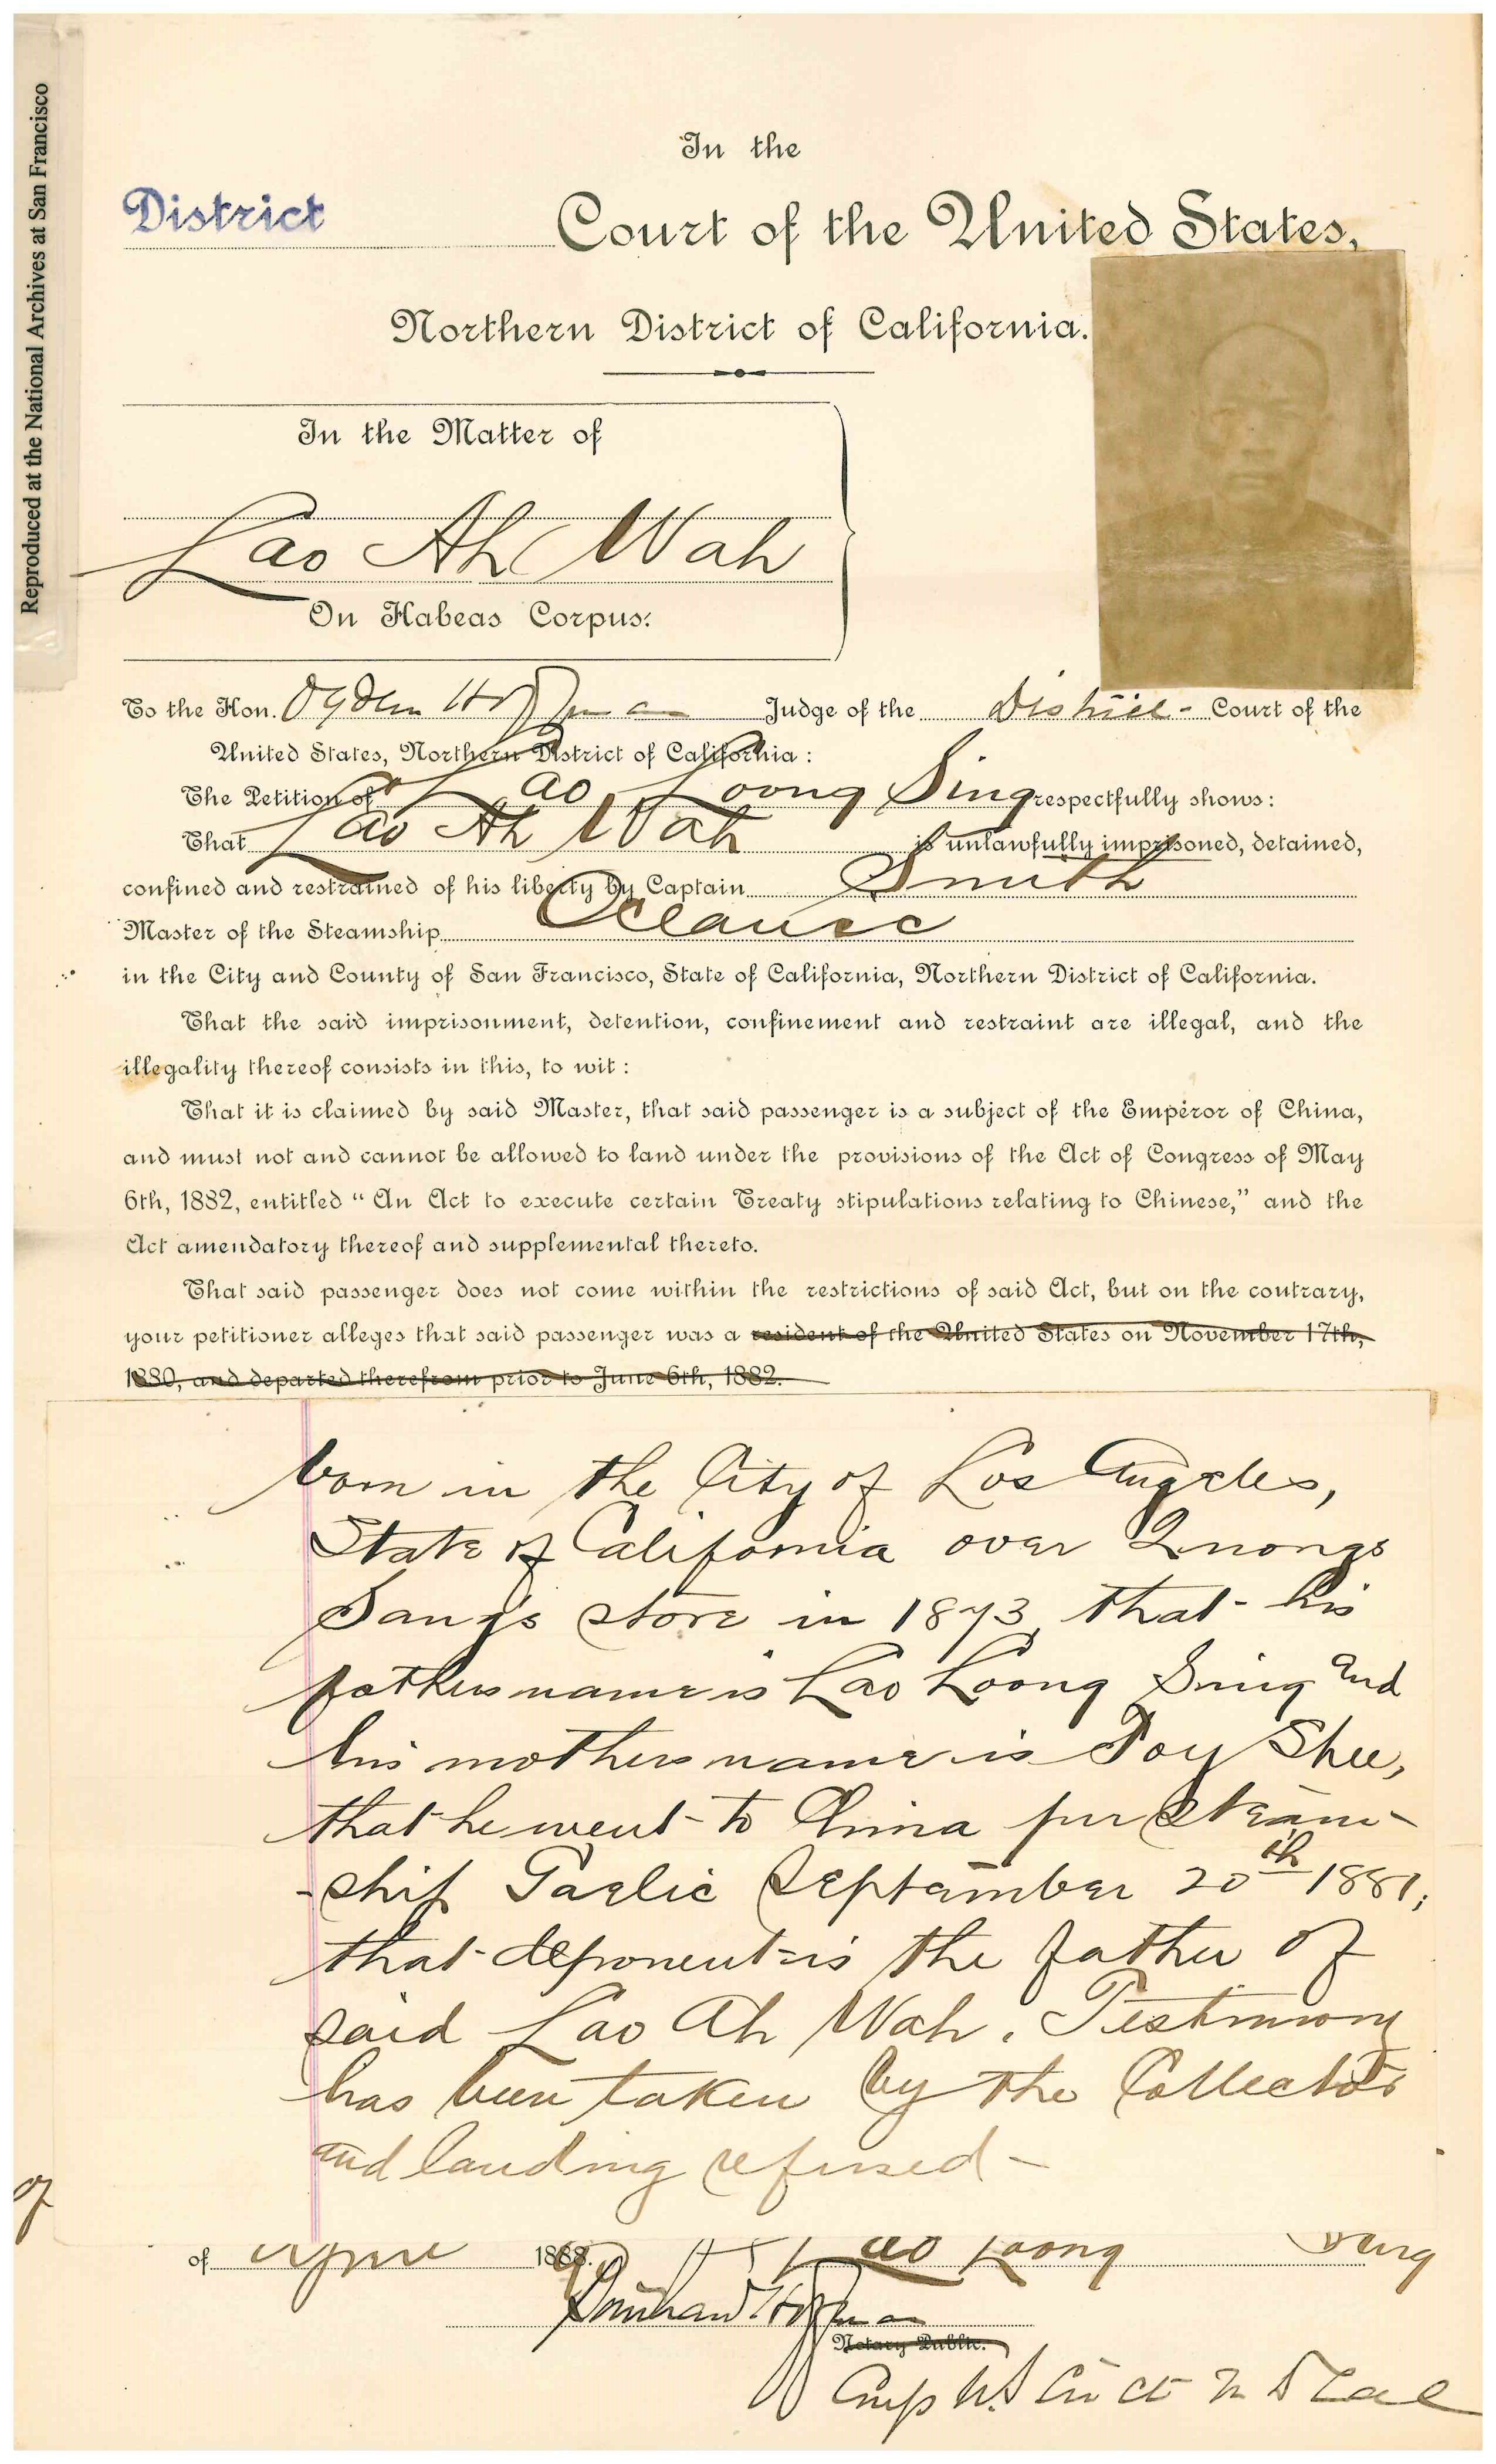 Reproduced at the National Archives at San Francisco
In the
District Court of the United States,
Northern District of California.
In the Matter of
Lao Ah Wah
On Habeas Corpus.
To the Hon. Ogden Hoffman Judge of the District Court of the
United States, Northern District of California :
The Petition of Lao Loong Sing respectfully shows :
That Lao Ah Wah is unlawfully imprisoned, detained,
confined and restrained of his liberty by Captain Smith
Master of the Steamship Oceanic
in the City and County of San Francisco, State of California, Northern District of California.
That the said imprisonment, detention, confinement and restraint are illegal, and the
illegality thereof consists in this, to wit :
That it is claimed by said Master, that said passenger is a subject of the Emperor of China,
and must not and cannot be allowed to land under the provisions of the Act of Congress of May
6th, 1882, entitled “ An Act to execute certain Treaty stipulations relating to Chinese,” and the
Act amendatory thereof and supplemental thereto.
That said passenger does not come within the restrictions of said Act, but on the contrary,
your petitioner alleges that said passenger was a resident of the United States on November 17th,
1880, and departed therefrom prior to June 6th, 1882.
born in the City of Los Angeles,
State of California over Quongs
Sangs store in 1873, that his
fathers name is Lao Loong Sing and
his mothers name is Toy Shee,
that he went to China per Steam-
-ship Gaelic September 20th 1881;
that deponent is the father of
said Lao Ah Wah. Testimony
has been taken by the Collector
and landing refused -
of
of 1888. 90 Lao Loong Sing
Hoffman
Notary Public.
U.S. Cir Ct N D Cal